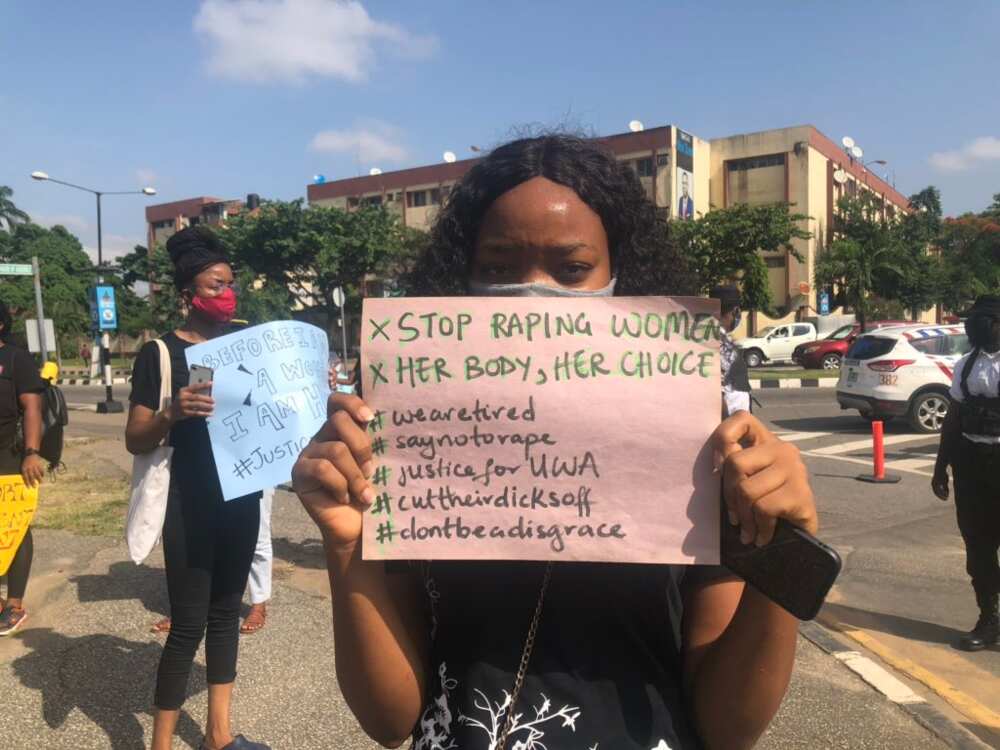 × STOP RAPING WOMEN
× HER BODY, HER CHOICE
# wearetired
# saynotorape
# justice for UWA
# cuttheirdicksoff
# dontbeadisgrace
BEFORE I
A
I AM
#JUSTIC
382